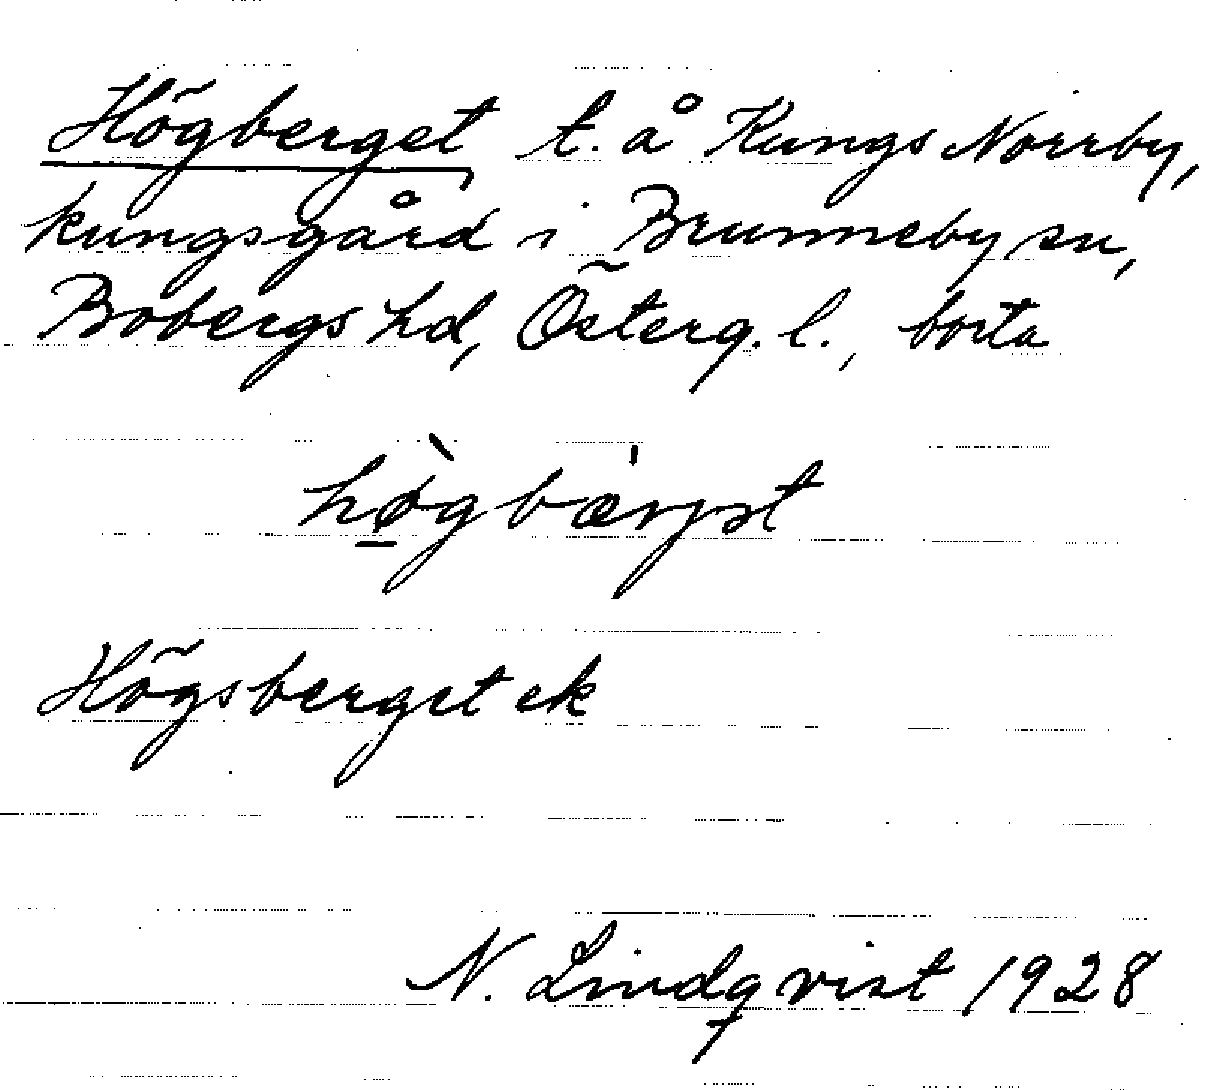 Högberget t. å Kungs Norrby,
kungsgård i Brunneby sn,
Bobergs hd, Österg. l., borta
hø̲̀gbæ̍rjət
Högsberget ek
N. Lindqvist 1928